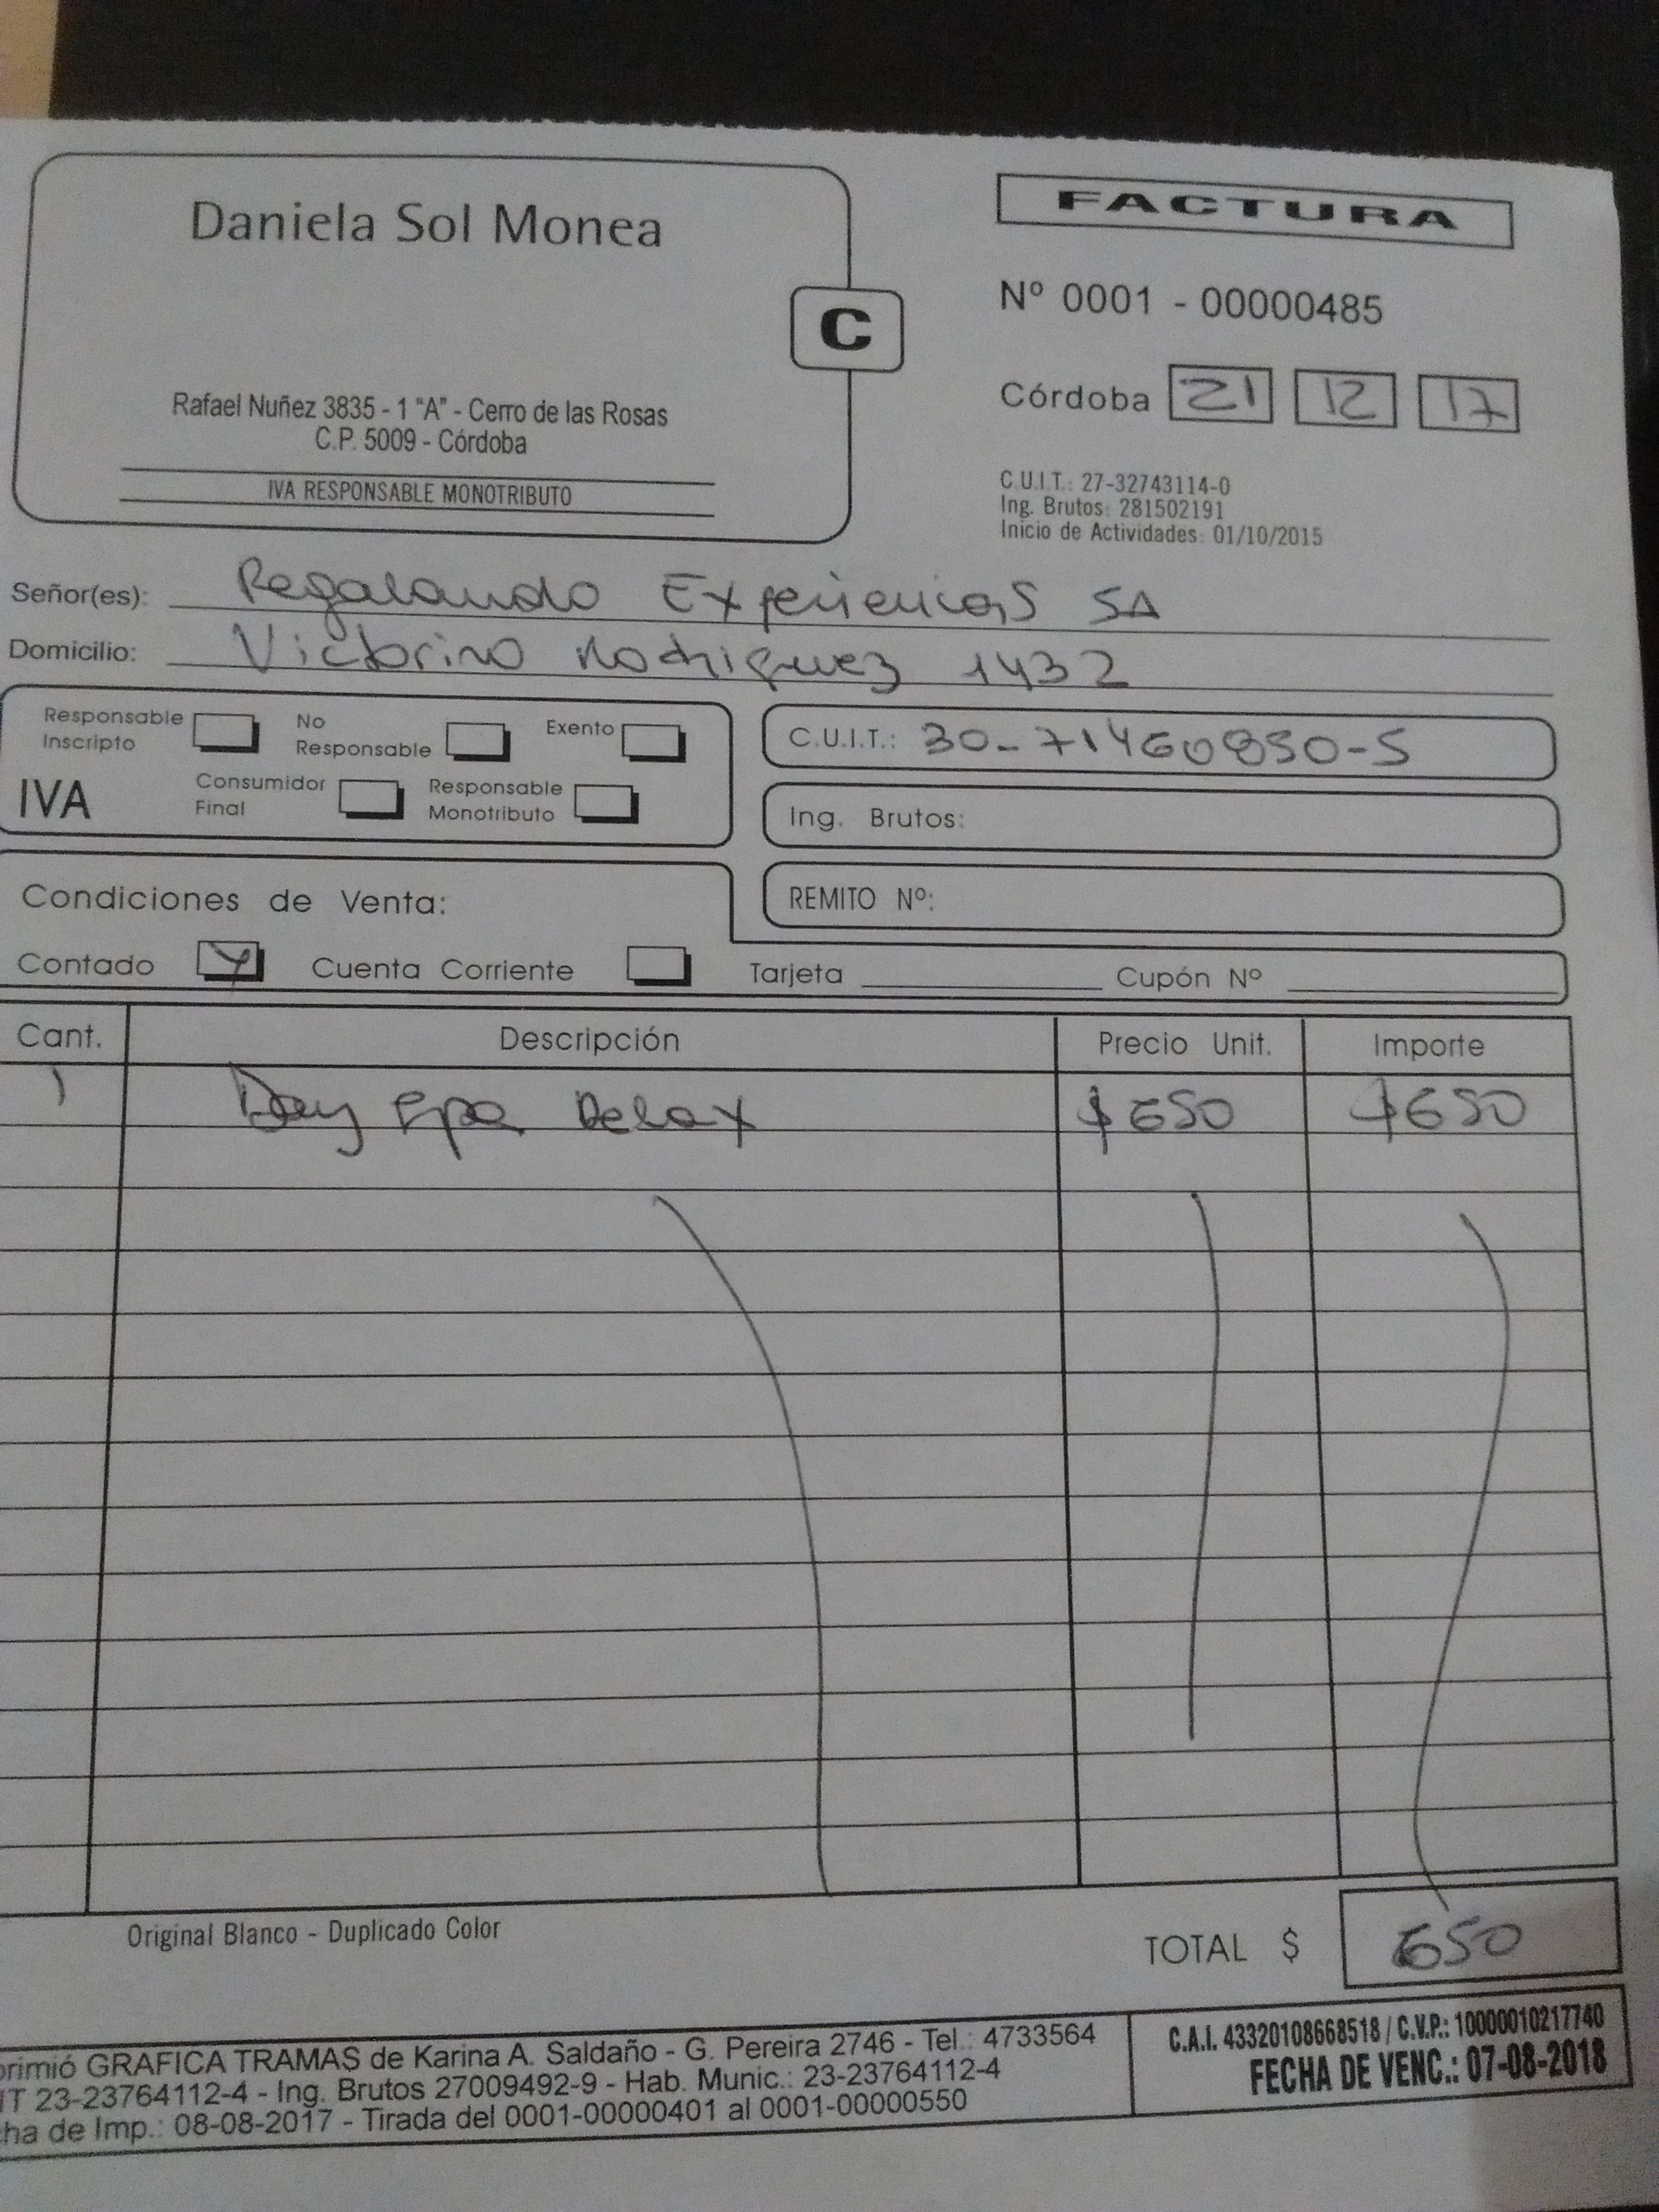 Daniela Sol Monea
Rafael Nuñez 3835 - 1 "A" - Cerro de las Rosas
C.P. 5009 - Córdoba
IVA RESPONSABLE MONOTRIBUTO
C
FACTURA
Nº 0001 - 00000485
Córdoba 21 12 17
C.U.I.T.: 27-32743114-0
Ing. Brutos: 281502191
Inicio de Actividades: 01/10/2015
Señor(es): Regalando Experiencias SA
Domicilio: Victorino Rodriguez 1432
Responsable Inscripto
No Responsable
Exento
IVA
Consumidor Final
Responsable Monotributo
C.U.I.T.: 30-71460850-5
Ing. Brutos:
REMITO Nº:
Condiciones de Venta:
Contado Cuenta Corriente Tarjeta Cupón Nº
Cant. Descripción Precio Unit. Importe
1 Day Spa Relax $650 $650
Original Blanco - Duplicado Color
TOTAL $ 650
primió GRAFICA TRAMAS de Karina A. Saldaño - G. Pereira 2746 - Tel.: 4733564
IT 23-23764112-4 - Ing. Brutos 27009492-9 - Hab. Munic.: 23-23764112-4
ha de Imp.: 08-08-2017 - Tirada del 0001-00000401 al 0001-00000550
C.A.I. 43320108668518 / C.V.P.: 10000010217740
FECHA DE VENC.: 07-08-2018